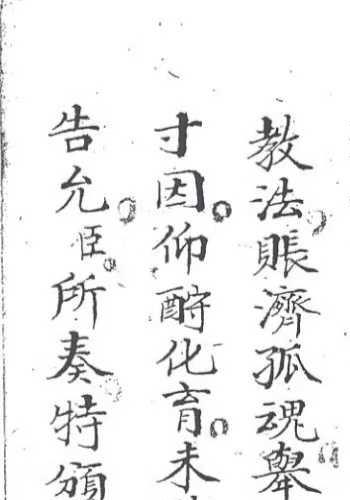 教法賬濟孤魂舉
寸因仰酧化育未
告允臣所奏特頒